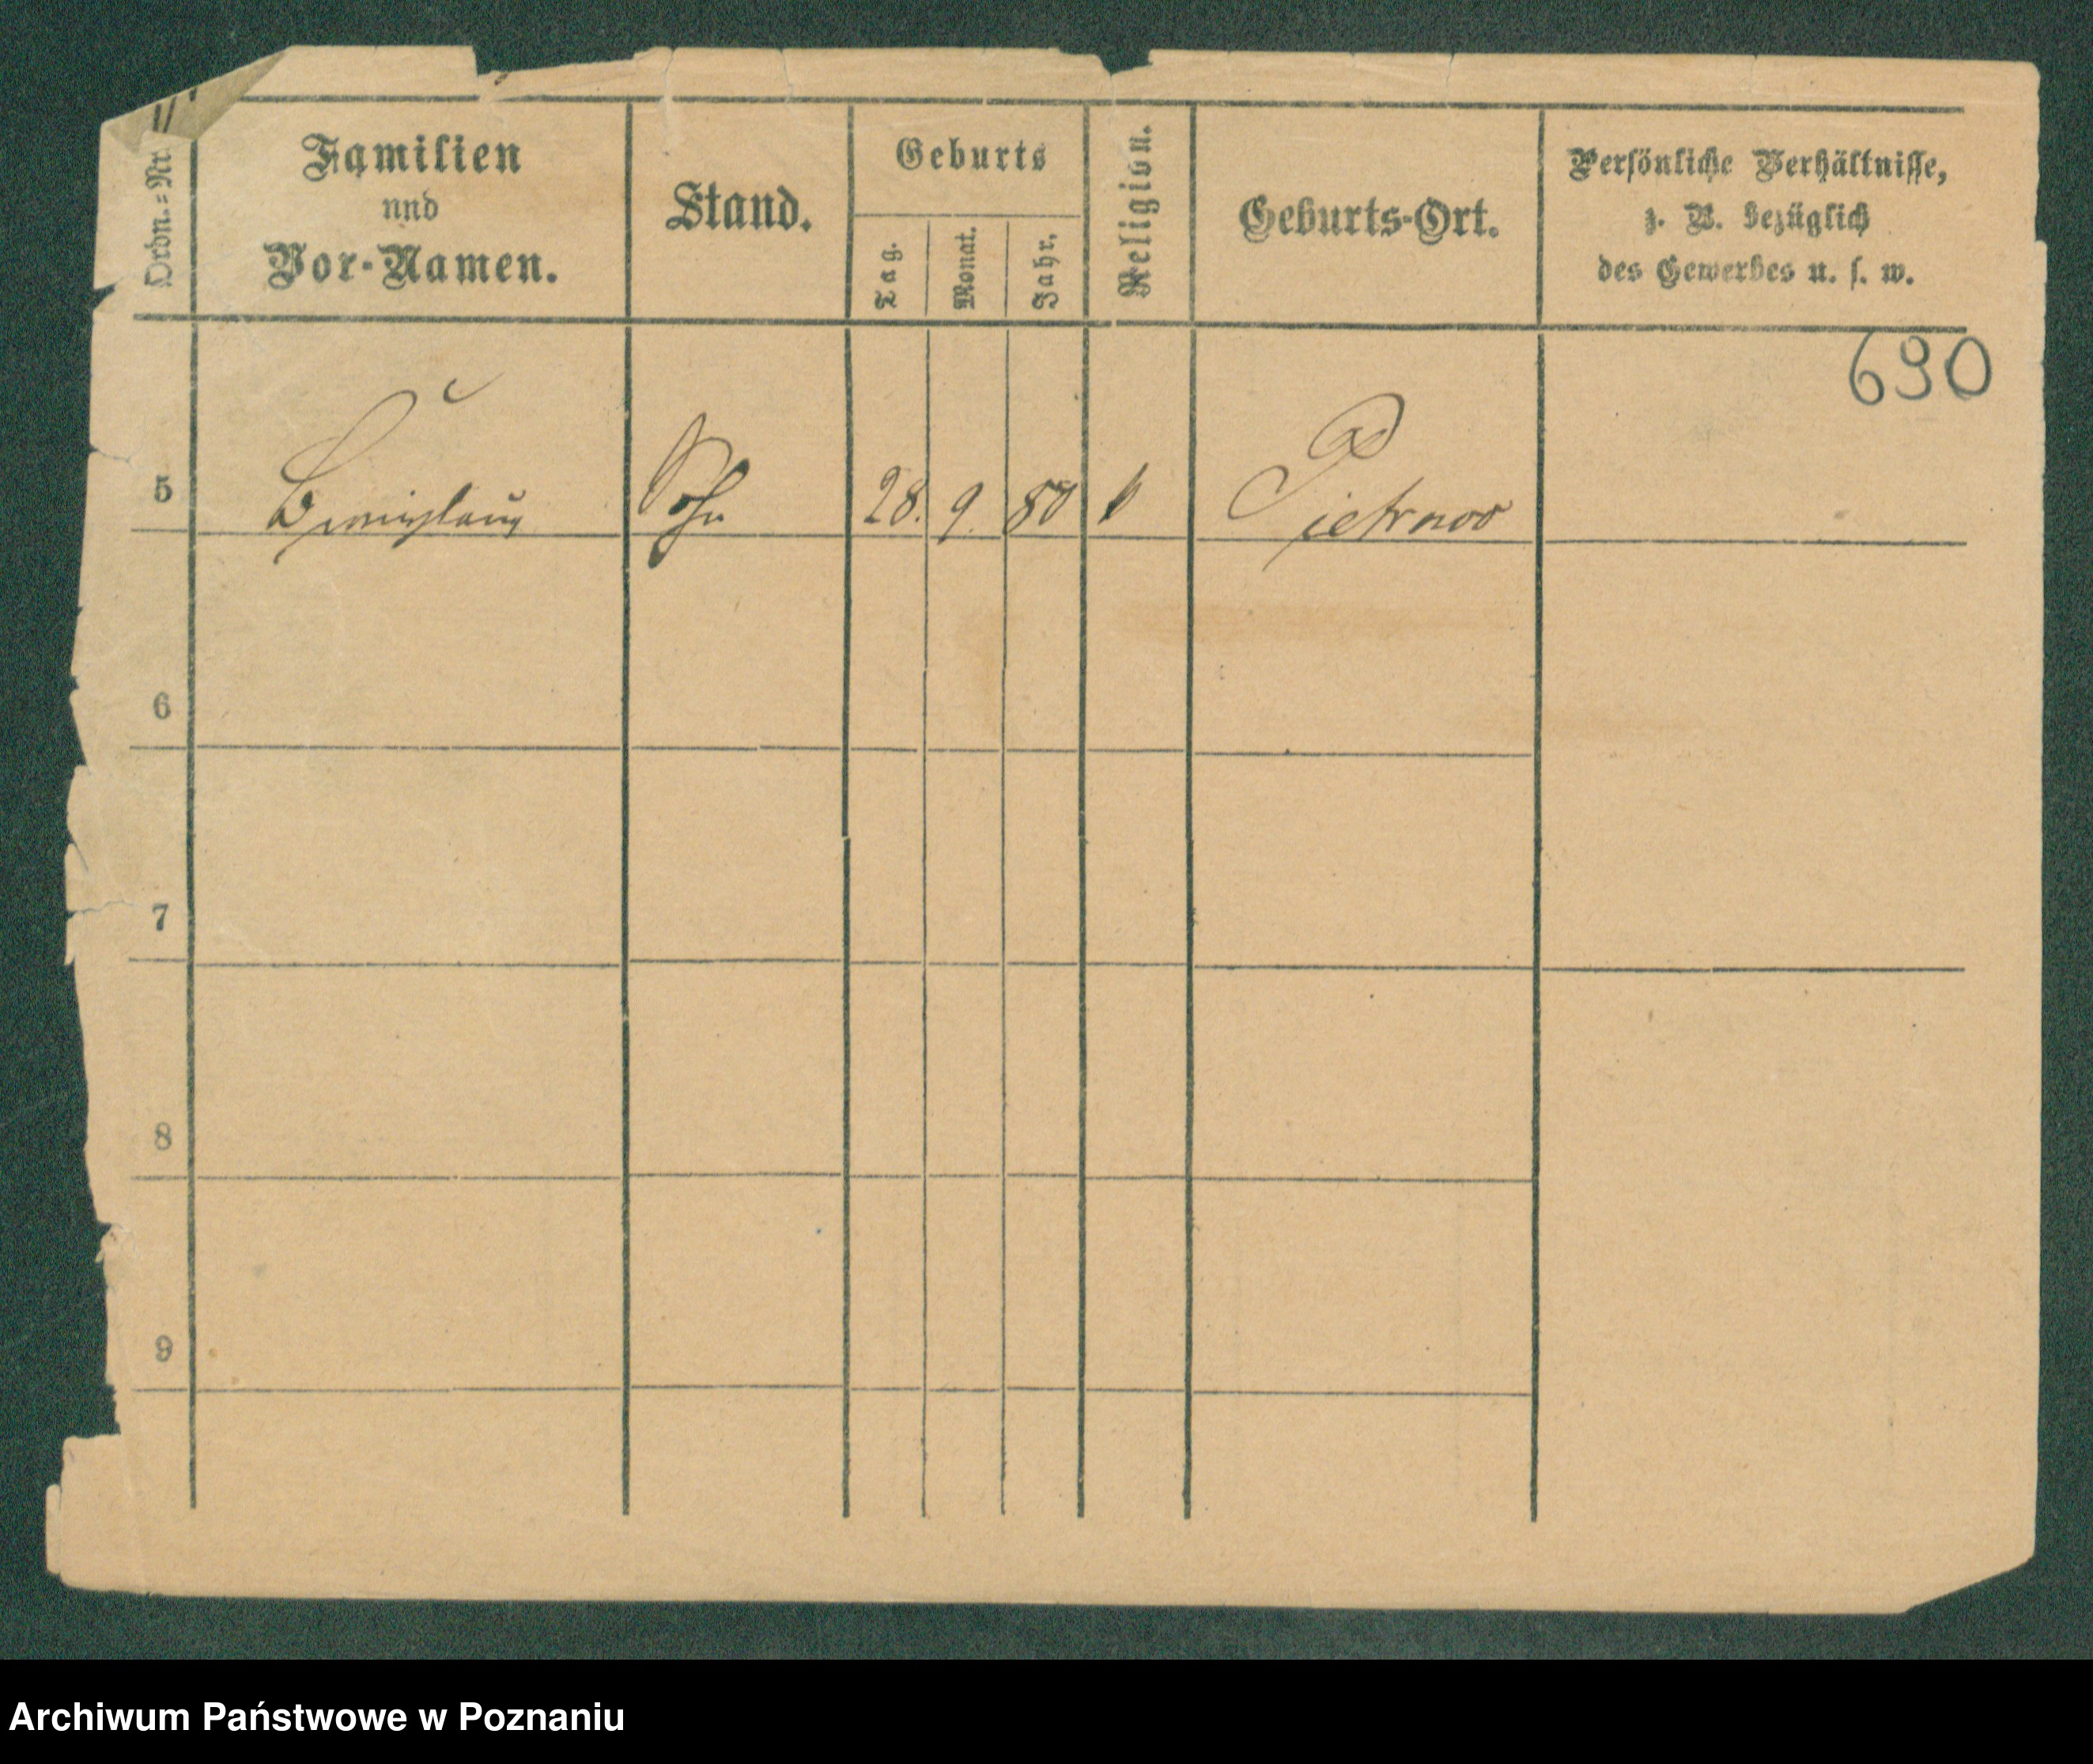 Ordn.=Nr.
Familien
nnd
Vor-Namen.
Stand.
Geburts
Tag.
Monat.
Jahr.
Religion.
Geburts-Ort.
Persönliche Verhältnisse,
z. B. bezüglich
des Gewerbes u. s. w.
690
5 Sohn 28. 9. 80 k
6
7
8
9
Archiwum Państwowe w Poznaniu